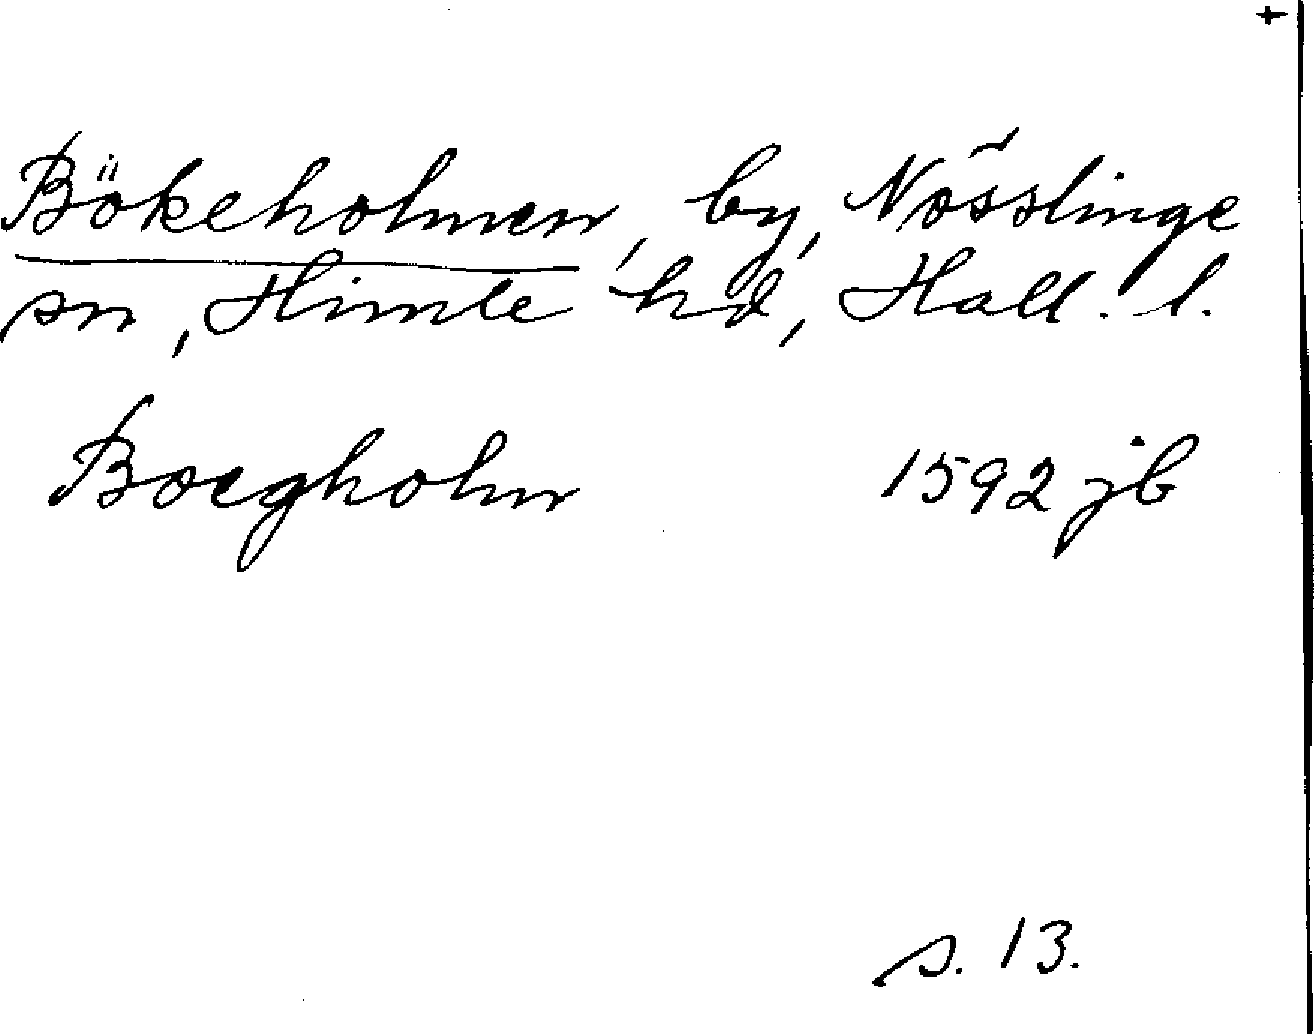 +
Bökeholmen, by, Nösslinge
sn, Himle hd, Hall. l.
Boegholm 1592 jb
s. 13.